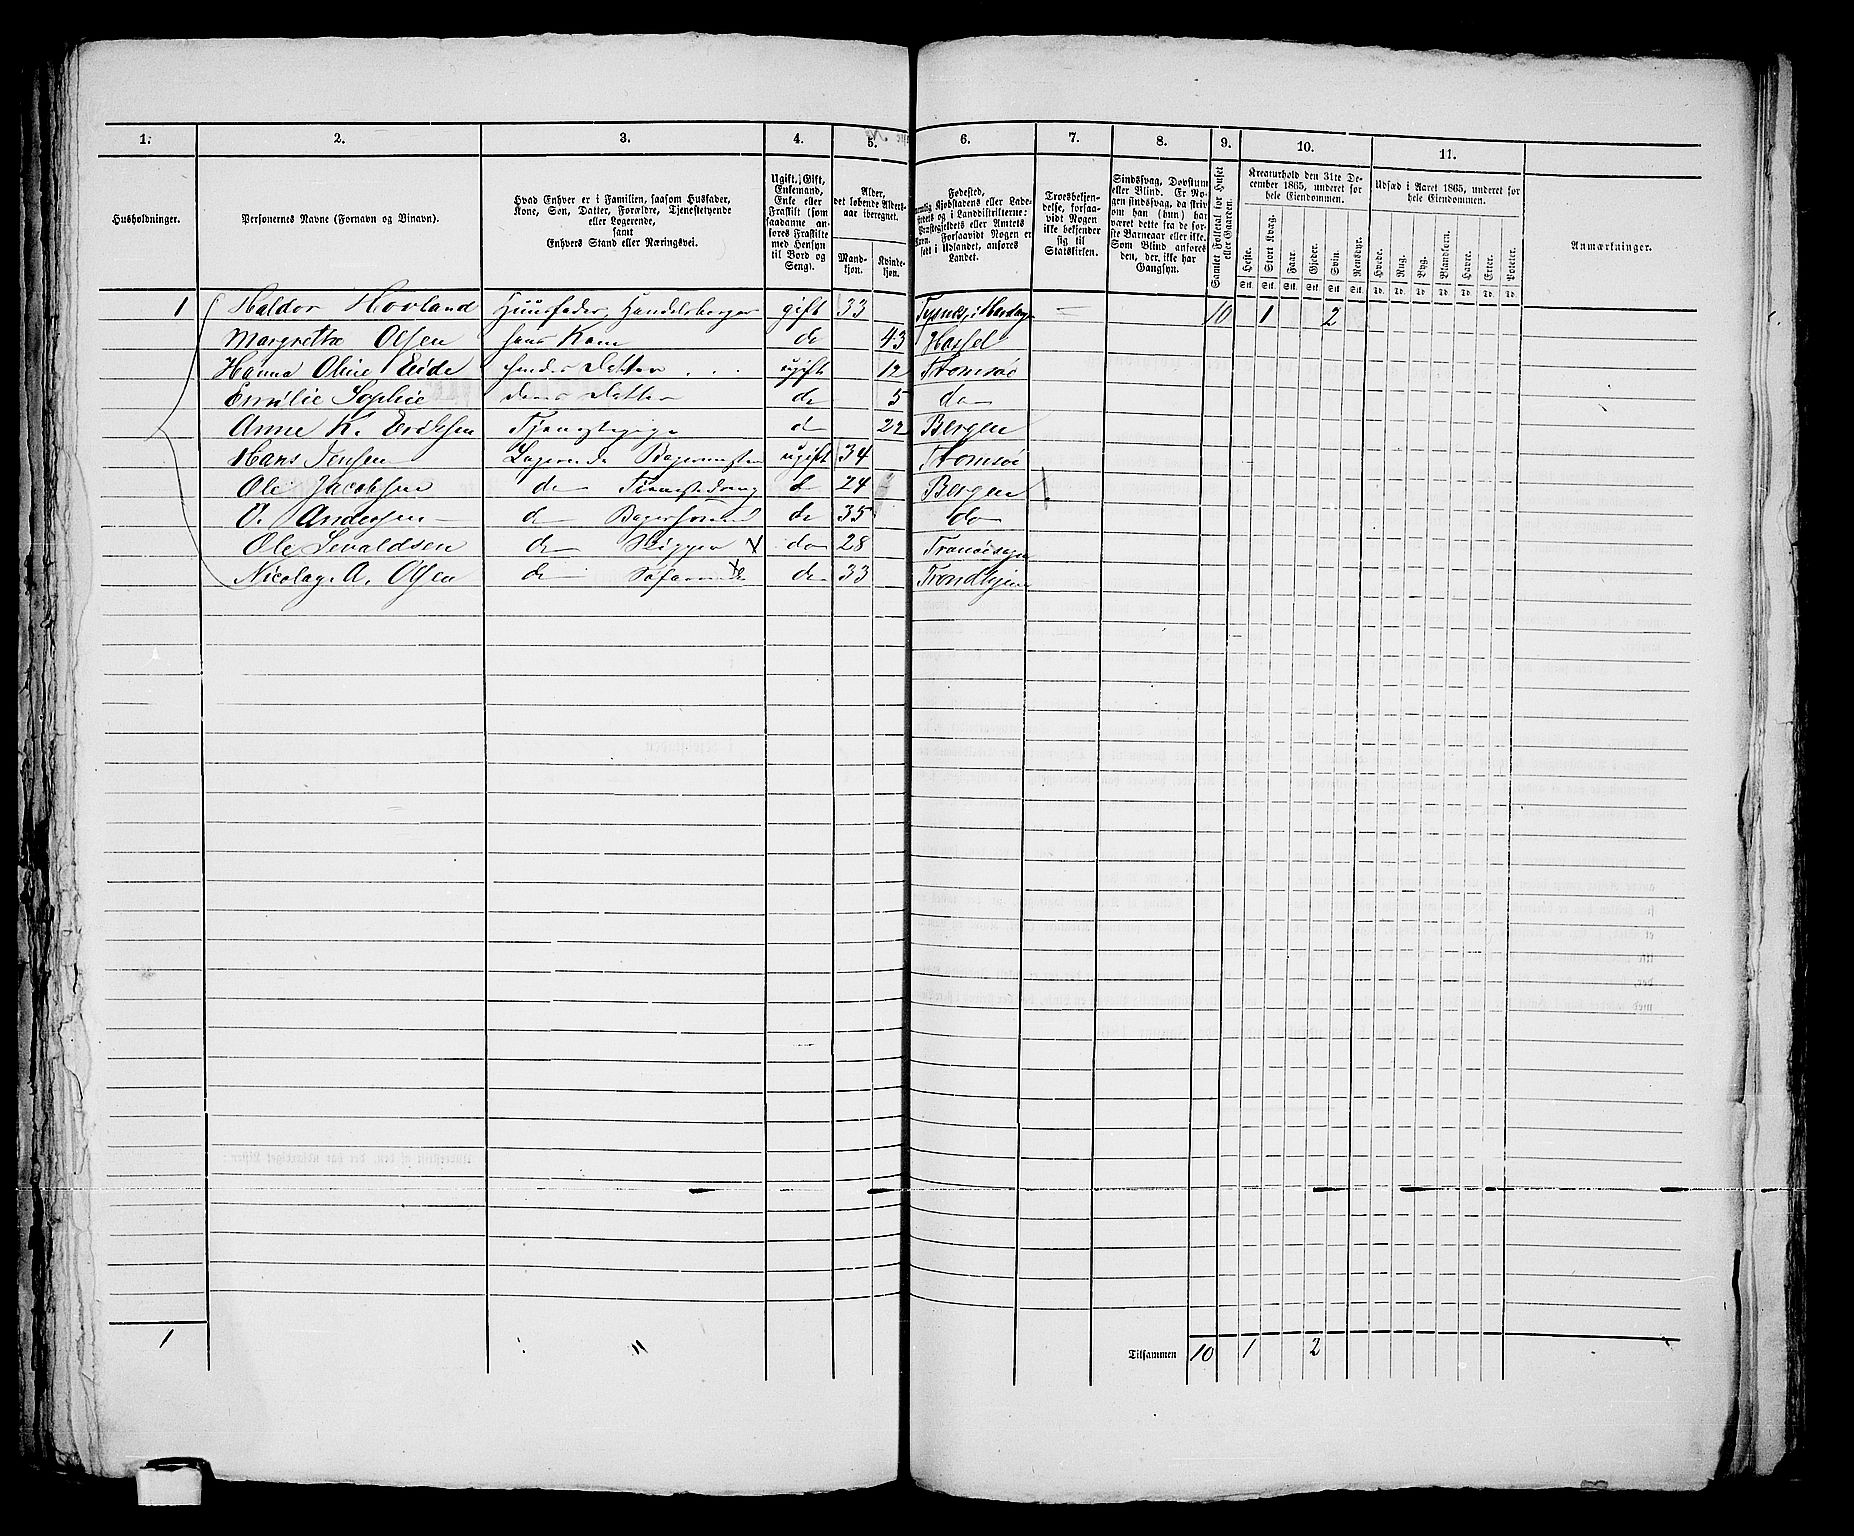 1. 2. 3. 4. 5. 6. 7. 8. 9. 10. 11.
Husholdninger.
Personernes Navne (Fornavn og Binavn).
Hvad Enhver er i Familien, saasom Husfader,
Kone, Søn, Datter, Forældre, Tjenestetyende
eller Logerende,
samt
Enhvers Stand eller Næringsvei.
Ugift, Gift,
Enkemand,
Enke eller
Fraskilt (som
saadanne an-
føres Fraskilte
med Hensyn
til Bord og
Seng).
Alder,
det løbende Alders-
aar iberegnet.
Mand-
kjøn.
Kvinde-
kjøn.
Fødested,
Kjøbstadens eller Lade-
stedets og i Landdistrikterne:
Præstegjeldets eller Annexets
Navn. Forsaavidt Nogen er
født i Udlandet, anføres
Landet.
Troesbekjen-
delse, forsaa-
vidt Nogen
ikke bekjender
sig til
Statskirken.
Sindssvag, Døvstum
eller Blind. Er No-
gen sindssvag, da skriv
om han (hun) har
været dette fra de før-
ste Barneaar eller ikke.
Som Blind anføres
den, der ikke har
Gangsyn.
Samlet Folketal for Huset
eller Gaarden.
Kreaturhold den 31te De-
cember 1865, underet for
hele Eiendommen.
Heste. Stort Kvæg. Faar. Gjeder. Svin. Rensdyr.
Stk. Stk. Stk. Stk. Stk. Stk.
Udsæd i Aaret 1865, underet for
hele Eiendommen.
Hvede. Rug. Byg. Blandkorn. Havre. Erter. Poteter.
Td. Td. Td. Td. Td. Td. Td.
Anmærkninger.
1 Haldor Hovland Huusfader, Handelsborger gift 33 — 10 1 2
Margrethe Olsen hans Kone do 43 Hassel
Hanna Oline Eide hendes Datter ugift 12 Tromsøe
Emilie Sophie deres Datter do 5 do
Anne K. Eriksen Tjenestepige do 22 Bergen
Hans Jensen Logerende Bagermester ugift 34 Tromsøe
Ole Jacobsen do Tjenestedreng do 24 Bergen
O. Andersen do Bagersvend do 35 do
Ole Sevaldsen do Skipper do 28
Nicolay A. Olsen do do 33 Trondhjem
1 Tilsammen 10 1 2